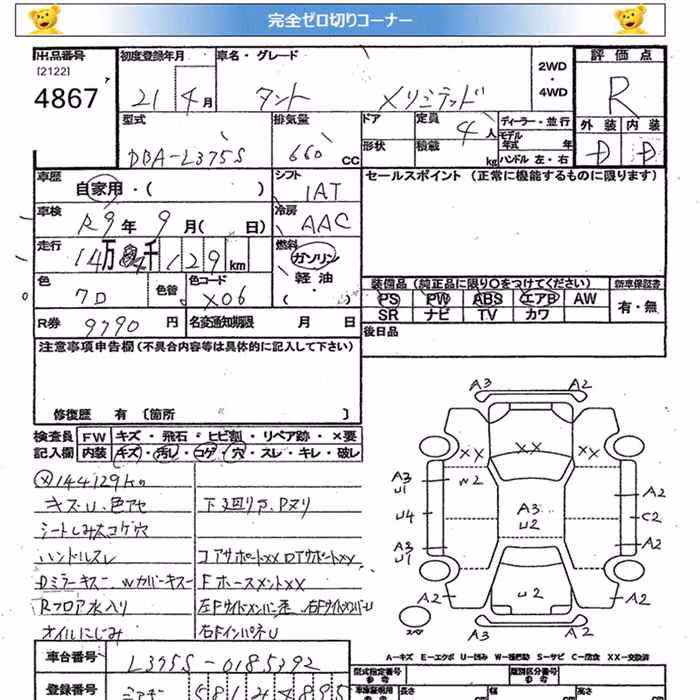 完全ゼロ切りコーナー
出品番号 初度登録年月 車名・グレード 2WD・4WD 評価点
[2122]
4867 21 4月 タント Xリミテッド R
型式 排気量 ドア 定員 4人 ディーラー・並行 外装 内装
DBA-L375S 660 CC 形状 積載 kg モデル年式 年 ハンドル 左・右 D D
車歴 自家用・( ) シフト 1AT セールスポイント (正常に機能するものに限ります)
車検 R9年 9月( 日) 冷房 AAC
走行 14万 4千 129 km 燃料 ガソリン 軽油 ( )
色 色替 色コード X06 装備品(純正品に限り○をつけてください) 新車保証書
PS PW ABS エアB AW 有・無
SR ナビ TV カワ
R券 9790 円 名変通知期限 月 日 後日品
注意事項申告欄(不具合内容等は具体的に記入して下さい)
修復歴 有 〔箇所 〕
検査員 FW キズ・飛石・ヒビ割・リペア跡・×要
記入欄 内装 キズ・汚レ・コゲ・穴・スレ・キレ・破レ
144129km
キズU、色アセ 下廻りサ、Pヌリ
シートしみ大コゲ穴
ハンドルスレ コアサポートXX
Dミラーキズ
Rフロア水入り
オイルにじみ 右FインパネU
A3 A2
XX XX
W2
A3 U1 A3 U2 A2
U4 C2
A3 U1 A2
A2 U2 A2
スペア A3 A2
A-キズ E-エクボ U-凹み W-補修跡 S-サビ C-腐食 XX-交換済
車台番号 L375S-0185392
型式指定番号 参考 類別区分番号 参考
登録番号 車庫証明用 参考 長さ cm 幅 cm 高さ cm